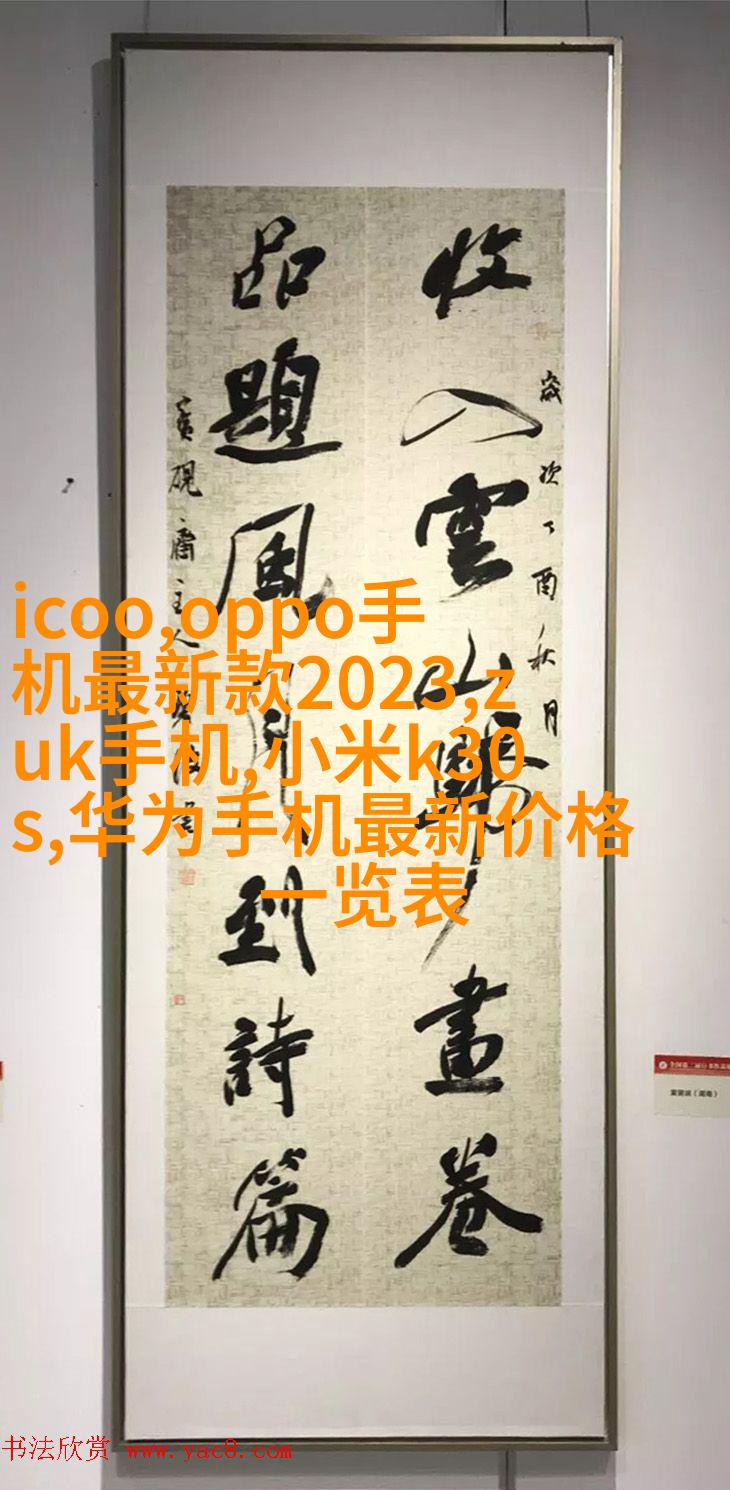 收入雲山歸畫卷
歲次丁酉秋月
品題風月到詩篇
硯齋主人
icoo,oppo手
机最新款2023,z
uk手机,小米k30
s,华为手机最新价格
一览表
书法欣赏 www.yac8.com